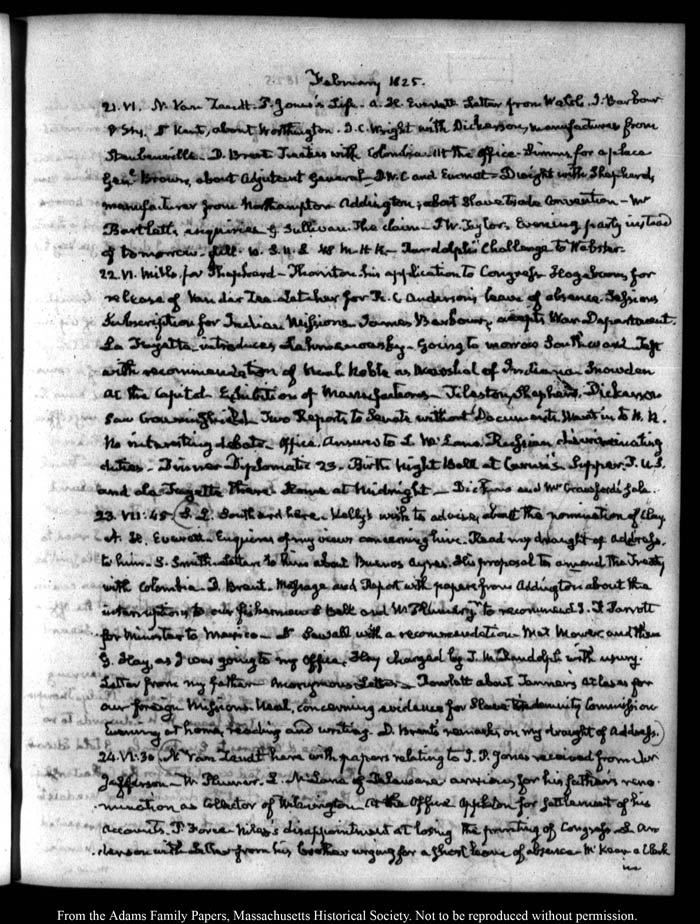 February 1825.
21. VI. N. Van Zandt. P. Jones's Life. A. H. Everett Letter from Walsh. J. Barbour
P. Kent, about Worthington. J. C. Wright with Dickerson, manufacturer from
Steubenville. D. Brent Treaties with Colombia. At the office for a place
Genl. Brown, about Adjutant General. D. W. C and Dwight with Shepherd,
manufacturer from Northampton Addington, about Slave trade Convention - Mr
Bartlett, enquiries Sullivan. The claim - J W. Taylor. Evening party instead
of tomorrow. full. Randolph's Challenge to Webster.
22. VI. Mills, for Shephard - Thornton his application to Congress for
release of Van der Zee. Letcher for R. C. Anderson's leave of absence. Sessions
Subscription for Indian Missions. James Barbour, accepts War Department.
La Fayette introduces - Going to morrow Southward. Taft
with recommendation of Neal Noble as Marshal of Indiana. Snowden
at the Capitol Exhibition of Manufactures - Tileston, Shepherd, Dickerson
Saw Two Reports to Senate without Documents. Went in to H. R.
No interesting debate. Office. Answers to L McLane. Russian discriminating
duties - Dinner Diplomatic 23. Birth Night Ball at Carusi's. Supper. J. U.S.
and La Fayette there. Home at Midnight - and Mr Crawford's
23. VII:45. S. L. Southard here. Kelly's wish to advise about the nomination of Clay
A. H. Everett. Enquiries of my views concerning him. Read my draught of Address.
to him. S. Smith. Letters to him about Buenos Ayres. His proposal to amend the Treaty
with Colombia. D. Brent. Message and Report with papers from Addington about the
interruptions to our fishermen. Ball and W. Plumer jr to recommend J. F Parrott
for Minister to Mexico - Sewall with a recommendation Met Mower, and then
G. Hay, as I was going to my Office. Hay charged by J. M. Randolph with usury.
Letter from my father. Anonymous Letter. Rowlett about Tanner's Atlases for
our foreign Missions. Neal, concerning evidence for Slave Indemnity Commission
Evening at home, reading and writing. D. Brent's remarks, on my draught of Address.)
24. VI:30. N Van Zandt here with papers relating to J. P. Jones received from Mr
Jefferson - W. Plumer. L. McLane of Delaware anxious for his father's reno-
mination as Collector of Wilmington. At the Office Appleton for settlement of his
accounts. P. Force. Niles's disappointment at losing the printing of Congress. An-
derson with Letter from his brother urging for a short leave of absence. McKean a Clerk
in
From the Adams Family Papers, Massachusetts Historical Society. Not to be reproduced without permission.